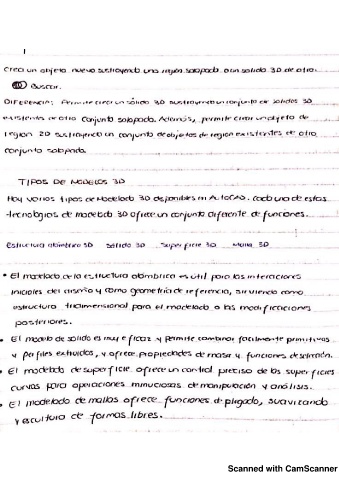 Crea un objeto nuevo sustrayendo una región solapada o un sólido 3D de otro.
Buscar.
DIFERENCIA: Permite crear un sólido 3D sustrayendo un conjunto de sólidos 3D
existentes de otro conjunto solapado. Además, permite crear un objeto de
región 2D sustrayendo un conjunto de objetos de región existentes de otro
conjunto solapado.
TIPOS DE MODELOS 3D
Hay varios tipos de modelado 3D disponibles en AutoCAD. Cada una de estas
tecnologías de modelado 3D ofrece un conjunto diferente de funciones.
Estructura alámbrica 3D Sólido 3D Superficie 3D Malla 3D
• El modelado de la estructura alámbrica es útil para las interacciones
iniciales del diseño y como geometría de referencia, sirviendo como
estructura tridimensional para el modelado o las modificaciones
posteriores.
• El modelo de sólido es muy eficaz y permite combinar facilmente primitivos
y perfiles extruidos, y ofrece propiedades de masa y funciones de sección.
• El modelado de superficie ofrece un control preciso de las superficies
curvas para operaciones minuciosas de manipulación y análisis.
• El modelado de mallas ofrece funciones de plegado, suavizado
y escultura de formas libres.
Scanned with CamScanner